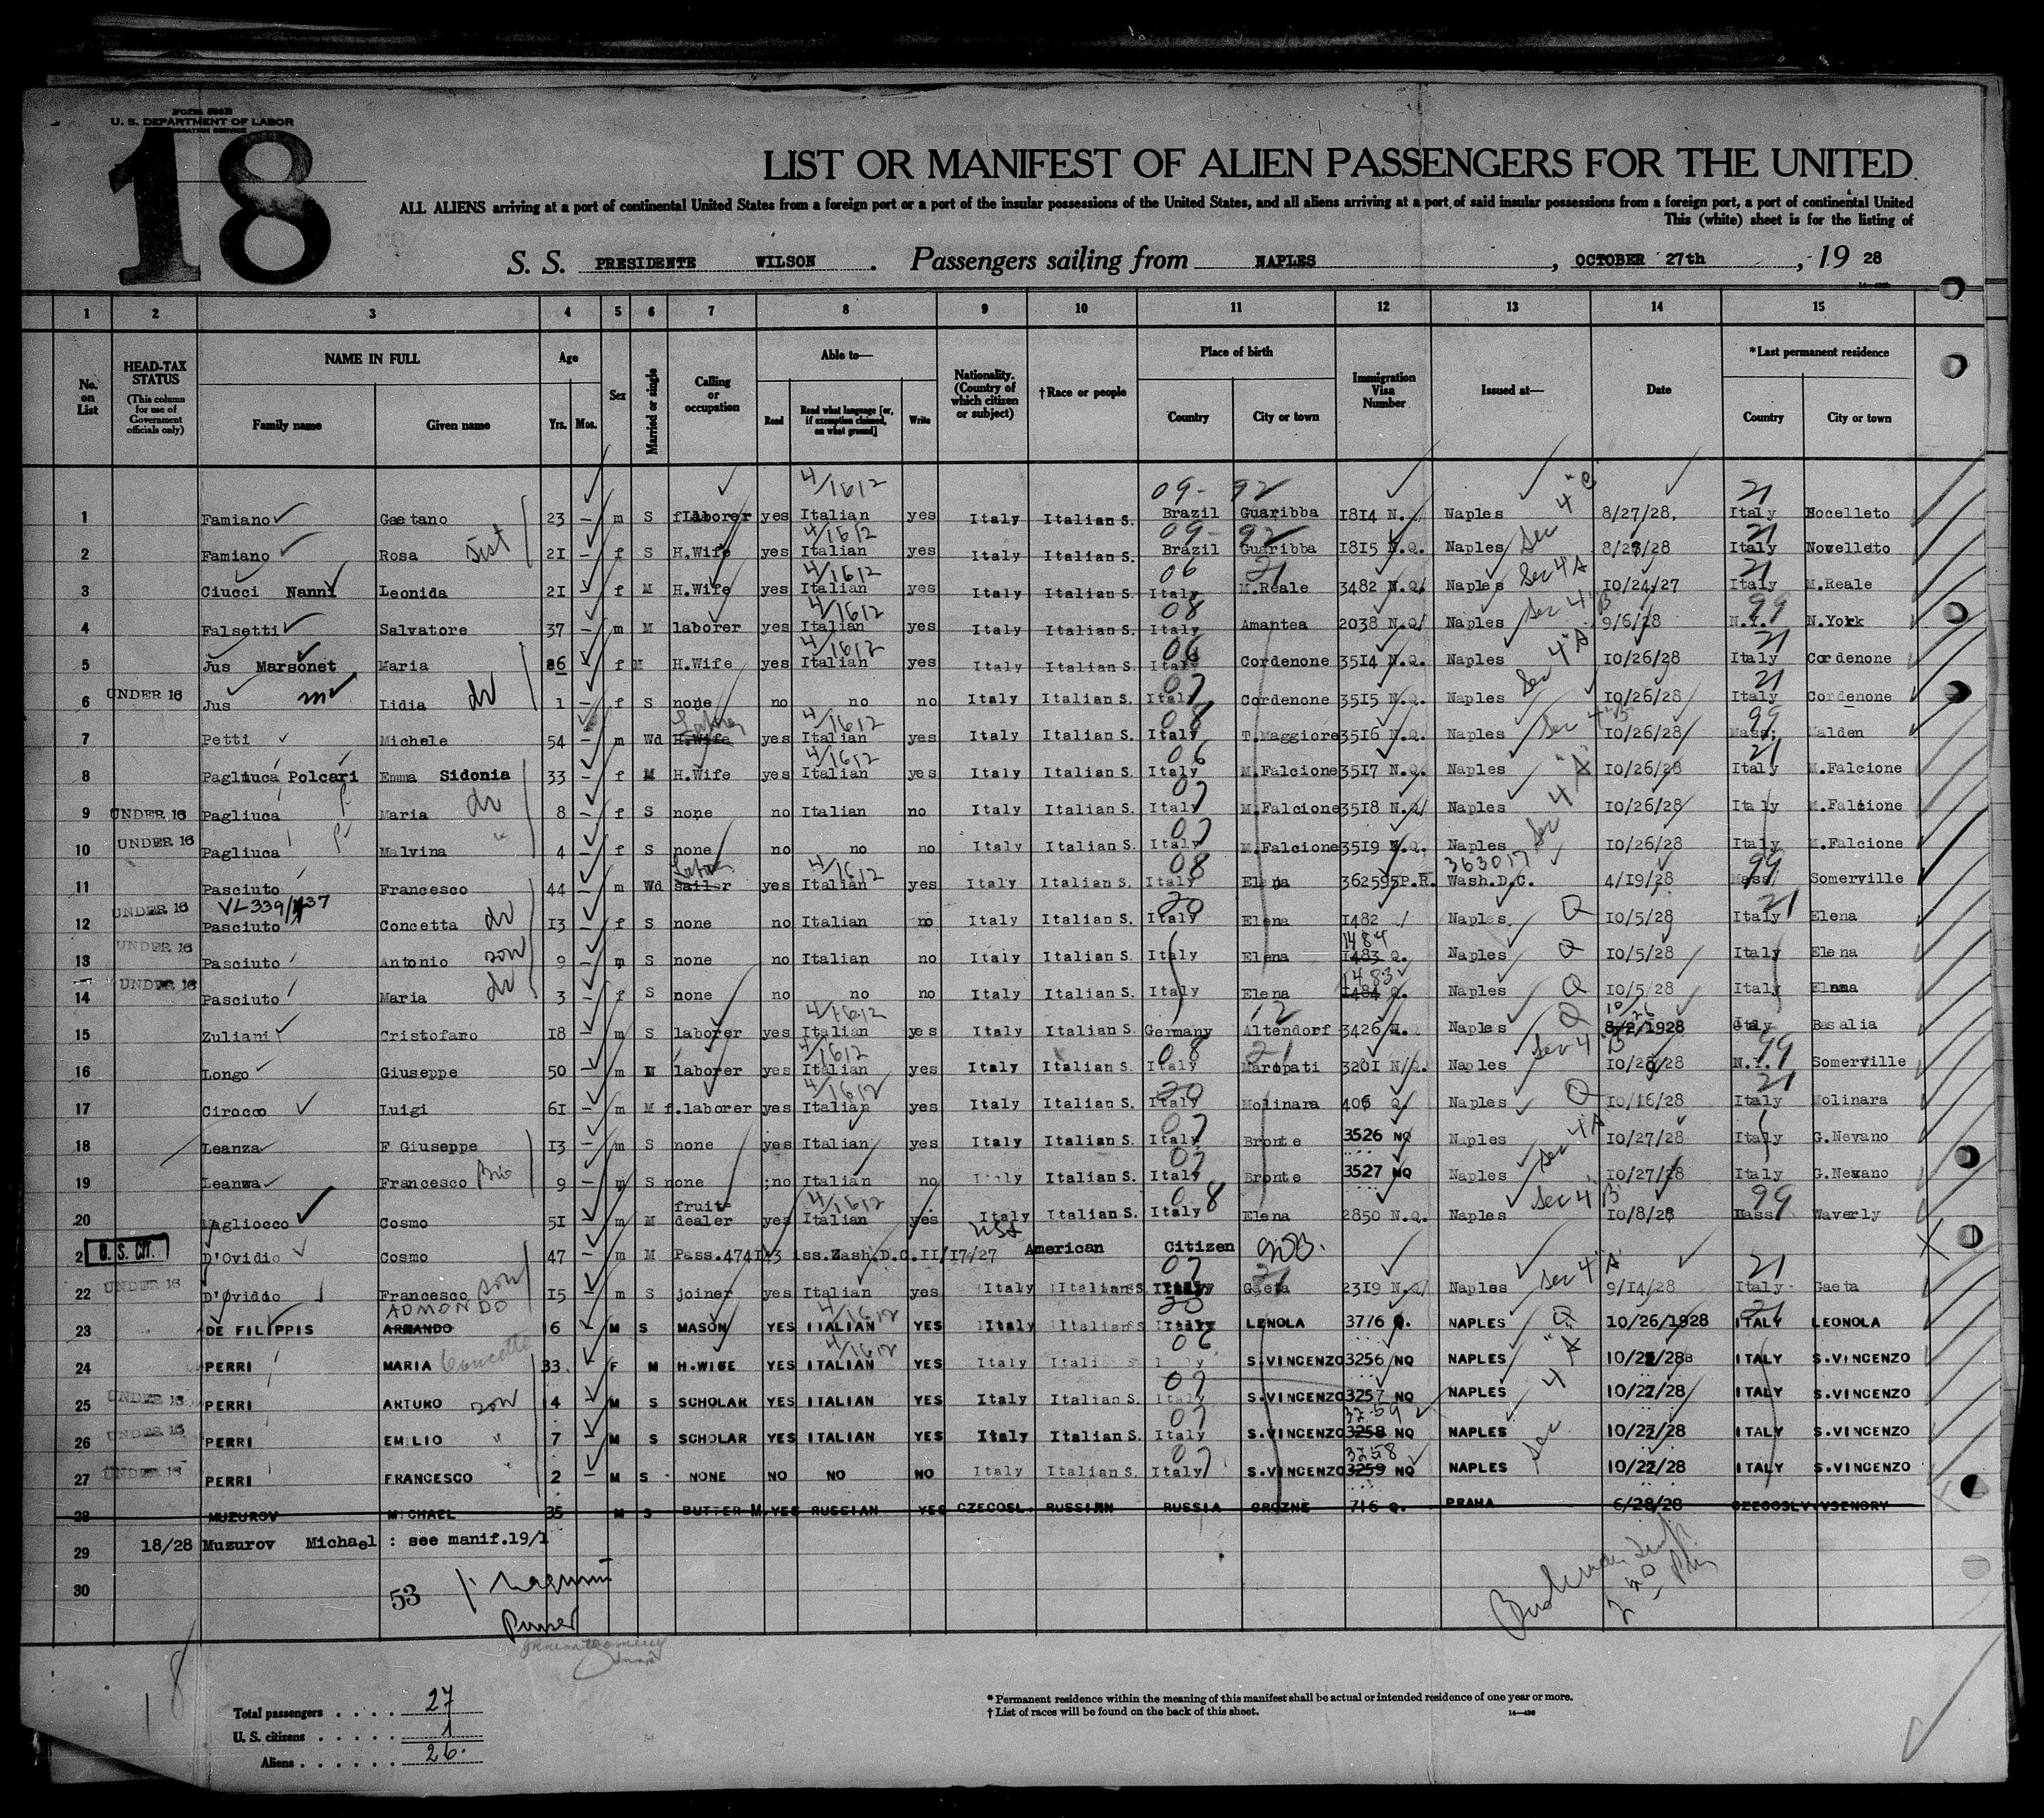 Form 500B
U. S. DEPARTMENT OF LABOR
IMMIGRATION SERVICE
18
LIST OR MANIFEST OF ALIEN PASSENGERS FOR THE UNITED
ALL ALIENS arriving at a port of continental United States from a foreign port or a port of the insular possessions of the United States, and all aliens arriving at a port of said insular possessions from a foreign port, a port of continental United
This (white) sheet is for the listing of
S. S. PRESIDENTE WILSON . Passengers sailing from NAPLES , OCTOBER 27th , 19 28
1 2 3 4 5 6 7 8 9 10 11 12 13 14 15
No. on List HEAD-TAX STATUS (This column for use of Government officials only) NAME IN FULL Family name Given name Age Yrs. Mos. Sex Married or single Calling or occupation Able to— Read Read what language [or, if exemption claimed, on what ground] Write Nationality. (Country of which citizen or subject) †Race or people Place of birth Country City or town Immigration Visa Number Issued at— Date *Last permanent residence Country City or town
4/1612 09- 92 21
1 Famiano Gaetano 23 — m S laborer yes Italian yes Italy Italian S. Brazil Guaribba 1814 N. Naples 8/27/28. Italy Nocelleto
4/1612 09- 92 Sec 4 "C" 21
2 Famiano Rosa sist 21 — f S H.Wife yes Italian yes Italy Italian S. Brazil Guaribba 1815 N.Q. Naples 8/27/28 Italy Novelleto
4/1612 06 21 Sec 4 A 21
3 Ciucci Nanni Leonida 21 f M H.Wife yes Italian yes Italy Italian S. Italy M.Reale 3482 N.Q. Naples 10/24/27 Italy M.Reale
4/1612 08 Sec 4 "B" 99
4 Falsetti Salvatore 37 — m M laborer yes Italian yes Italy Italian S. Italy Amantea 2038 N.Q. Naples 9/6/28 N.Y. N.York
4/1612 06 Sec 4 "A" 21
5 Jus Marsonet Maria 26 f M H.Wife yes Italian yes Italy Italian S. Italy Cordenone 3514 N.Q. Naples 10/26/28 Italy Cordenone
07 21
6 UNDER 16 Jus m Lidia dr 1 — f S none no no no Italy Italian S. Italy Cordenone 3515 N.Q. Naples 10/26/28 Italy Cordenone
Labor 4/1612 08 Sec 4 "B" 99
7 Petti Michele 54 — m Wd H.Wife yes Italian yes Italy Italian S. Italy T.Maggiore 3516 N.Q. Naples 10/26/28 Mass; Malden
4/1612 06 21
8 Pagliuca Polcari Emma Sidonia 33 — f M H.Wife yes Italian yes Italy Italian S. Italy M.Falcione 3517 N.Q. Naples 10/26/28 Italy M.Falcione
07 Sec 4 "A"
9 UNDER 16 Pagliuca P Maria dr 8 — f S none no Italian no Italy Italian S. Italy M.Falcione 3518 N.Q. Naples 10/26/28 Italy M.Falcione
07
10 UNDER 16 Pagliuca P Malvina " 4 — f S none no no no Italy Italian S. Italy M.Falcione 3519 N.Q. Naples 10/26/28 Italy M.Falcione
Labor 4/1612 08 363017 99
11 Pasciuto Francesco 44 — m Wd sailor yes Italian yes Italy Italian S. Italy Elena 362595P.R. Wash.D.C. 4/19/28 Mass; Somerville
VL339/437 20 21
12 UNDER 16 Pasciuto Concetta dr 13 — f S none no Italian no Italy Italian S. Italy Elena 1482 Naples Q 10/5/28 Italy Elena
1484
13 UNDER 16 Pasciuto Antonio son 9 — m S none no Italian no Italy Italian S. Italy Elena 1483 Q. Naples Q 10/5/28 Italy Elena
1483
14 UNDER 16 Pasciuto Maria dr 3 — f S none no no no Italy Italian S. Italy Elena 1484 Q. Naples Q 10/5/28 Italy Elena
4/1612 12 10/26
15 Zuliani Cristofaro 18 — m S laborer yes Italian yes Italy Italian S. Germany Altendorf 3426 Naples Q 8/2/1928 Italy Basalia
4/1612 08 21 Sec 4 "B" 99
16 Longo Giuseppe 50 — m M laborer yes Italian yes Italy Italian S. Italy Maropati 3201 N/Q. Naples 10/20/28 N.Y. Somerville
4/1612 20 21
17 Cirocco Luigi 61 — m M f.laborer yes Italian yes Italy Italian S. Italy Molinara 406 Q Naples Q 10/16/28 Italy Molinara
07 Sec 4A
18 Leanza F Giuseppe 13 — m S none yes Italian yes Italy Italian S. Italy Bronte 3526 NQ Naples 10/27/28 Italy G.Nevano
07
19 Leanza Francesco Bro 9 — m S none ;no Italian no Italy Italian S. Italy Bronte 3527 NQ Naples 10/27/28 Italy G.Nevano
fruit= 4/1612 08 Sec 4 "B" 99
20 Magliocco Cosmo 51 — m M dealer yes Italian yes Italy Italian S. Italy Elena 2850 N.Q. Naples 10/8/28 Mass Waverly
USA
2 U. S. CIT. D'Ovidio Cosmo 47 — m M Pass.474143 iss.Wash.D.C.11/17/27 American Citizen
07 21 Sec 4 "A" 21
22 UNDER 16 D'Ovidio Francesco son 15 — m S joiner yes Italian yes Italy Italian S Italy Gaeta 2319 N.Q/ Naples 9/14/28 Italy Gaeta
ADMONDO 4/1612 20 21
23 DE FILIPPIS ARMANDO 16 M S MASON YES ITALIAN YES Italy Italian S Italy LENOLA 3776 Q. NAPLES Q 10/26/1928 ITALY LEONOLA
4/1612 06
24 PERRI MARIA Concetta 33. — F M H.WIFE YES ITALIAN YES Italy Italian S. S.VINCENZO 3256 NQ NAPLES 10/22/28 ITALY S.VINCENZO
07 Sec 4 "A"
25 UNDER 16 PERRI ARTURO son 14 M S SCHOLAR YES ITALIAN YES Italy Italian S. Italy S.VINCENZO 3257 NQ NAPLES 10/22/28 ITALY S.VINCENZO
07 3259
26 UNDER 16 PERRI EMILIO " 7 — M S SCHOLAR YES ITALIAN YES Italy Italian S. Italy S.VINCENZO 3258 NQ NAPLES 10/22/28 ITALY S.VINCENZO
07 3258
27 UNDER 16 PERRI FRANCESCO " 2 — M S NONE NO NO NO Italy Italian S. Italy S.VINCENZO 3259 NQ NAPLES 10/22/28 ITALY S.VINCENZO
28 MUZUROV MICHAEL 35 M S BUTTER M. YES RUSSIAN YES CZECOSL. RUSSIAN RUSSIA GROZNE 716 Q. PRAHA 6/28/28 CZECOSLV. VSENORY
29 18/28 Muzurov Michael : see manif.19/1
30 53
Total passengers . . . . 27
U. S. citizens . . . . . 1
Aliens . . . . . . 26.
* Permanent residence within the meaning of this manifest shall be actual or intended residence of one year or more.
† List of races will be found on the back of this sheet.
18